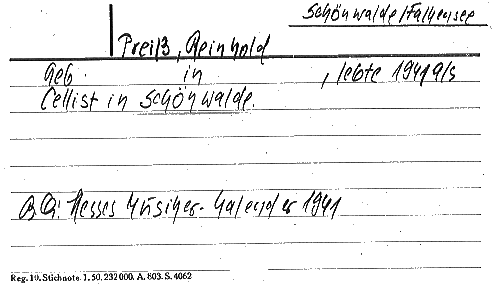 Schönwalde/Falkensee
Preiß, Reinhold
Geb. in , lebte 1941 als
Cellist in Schönwalde.
B.Q: Hesses Musiker-Kalender 1941
Reg. 19. Stichnote. 1. 50. 232000. A. 803. S. 4062